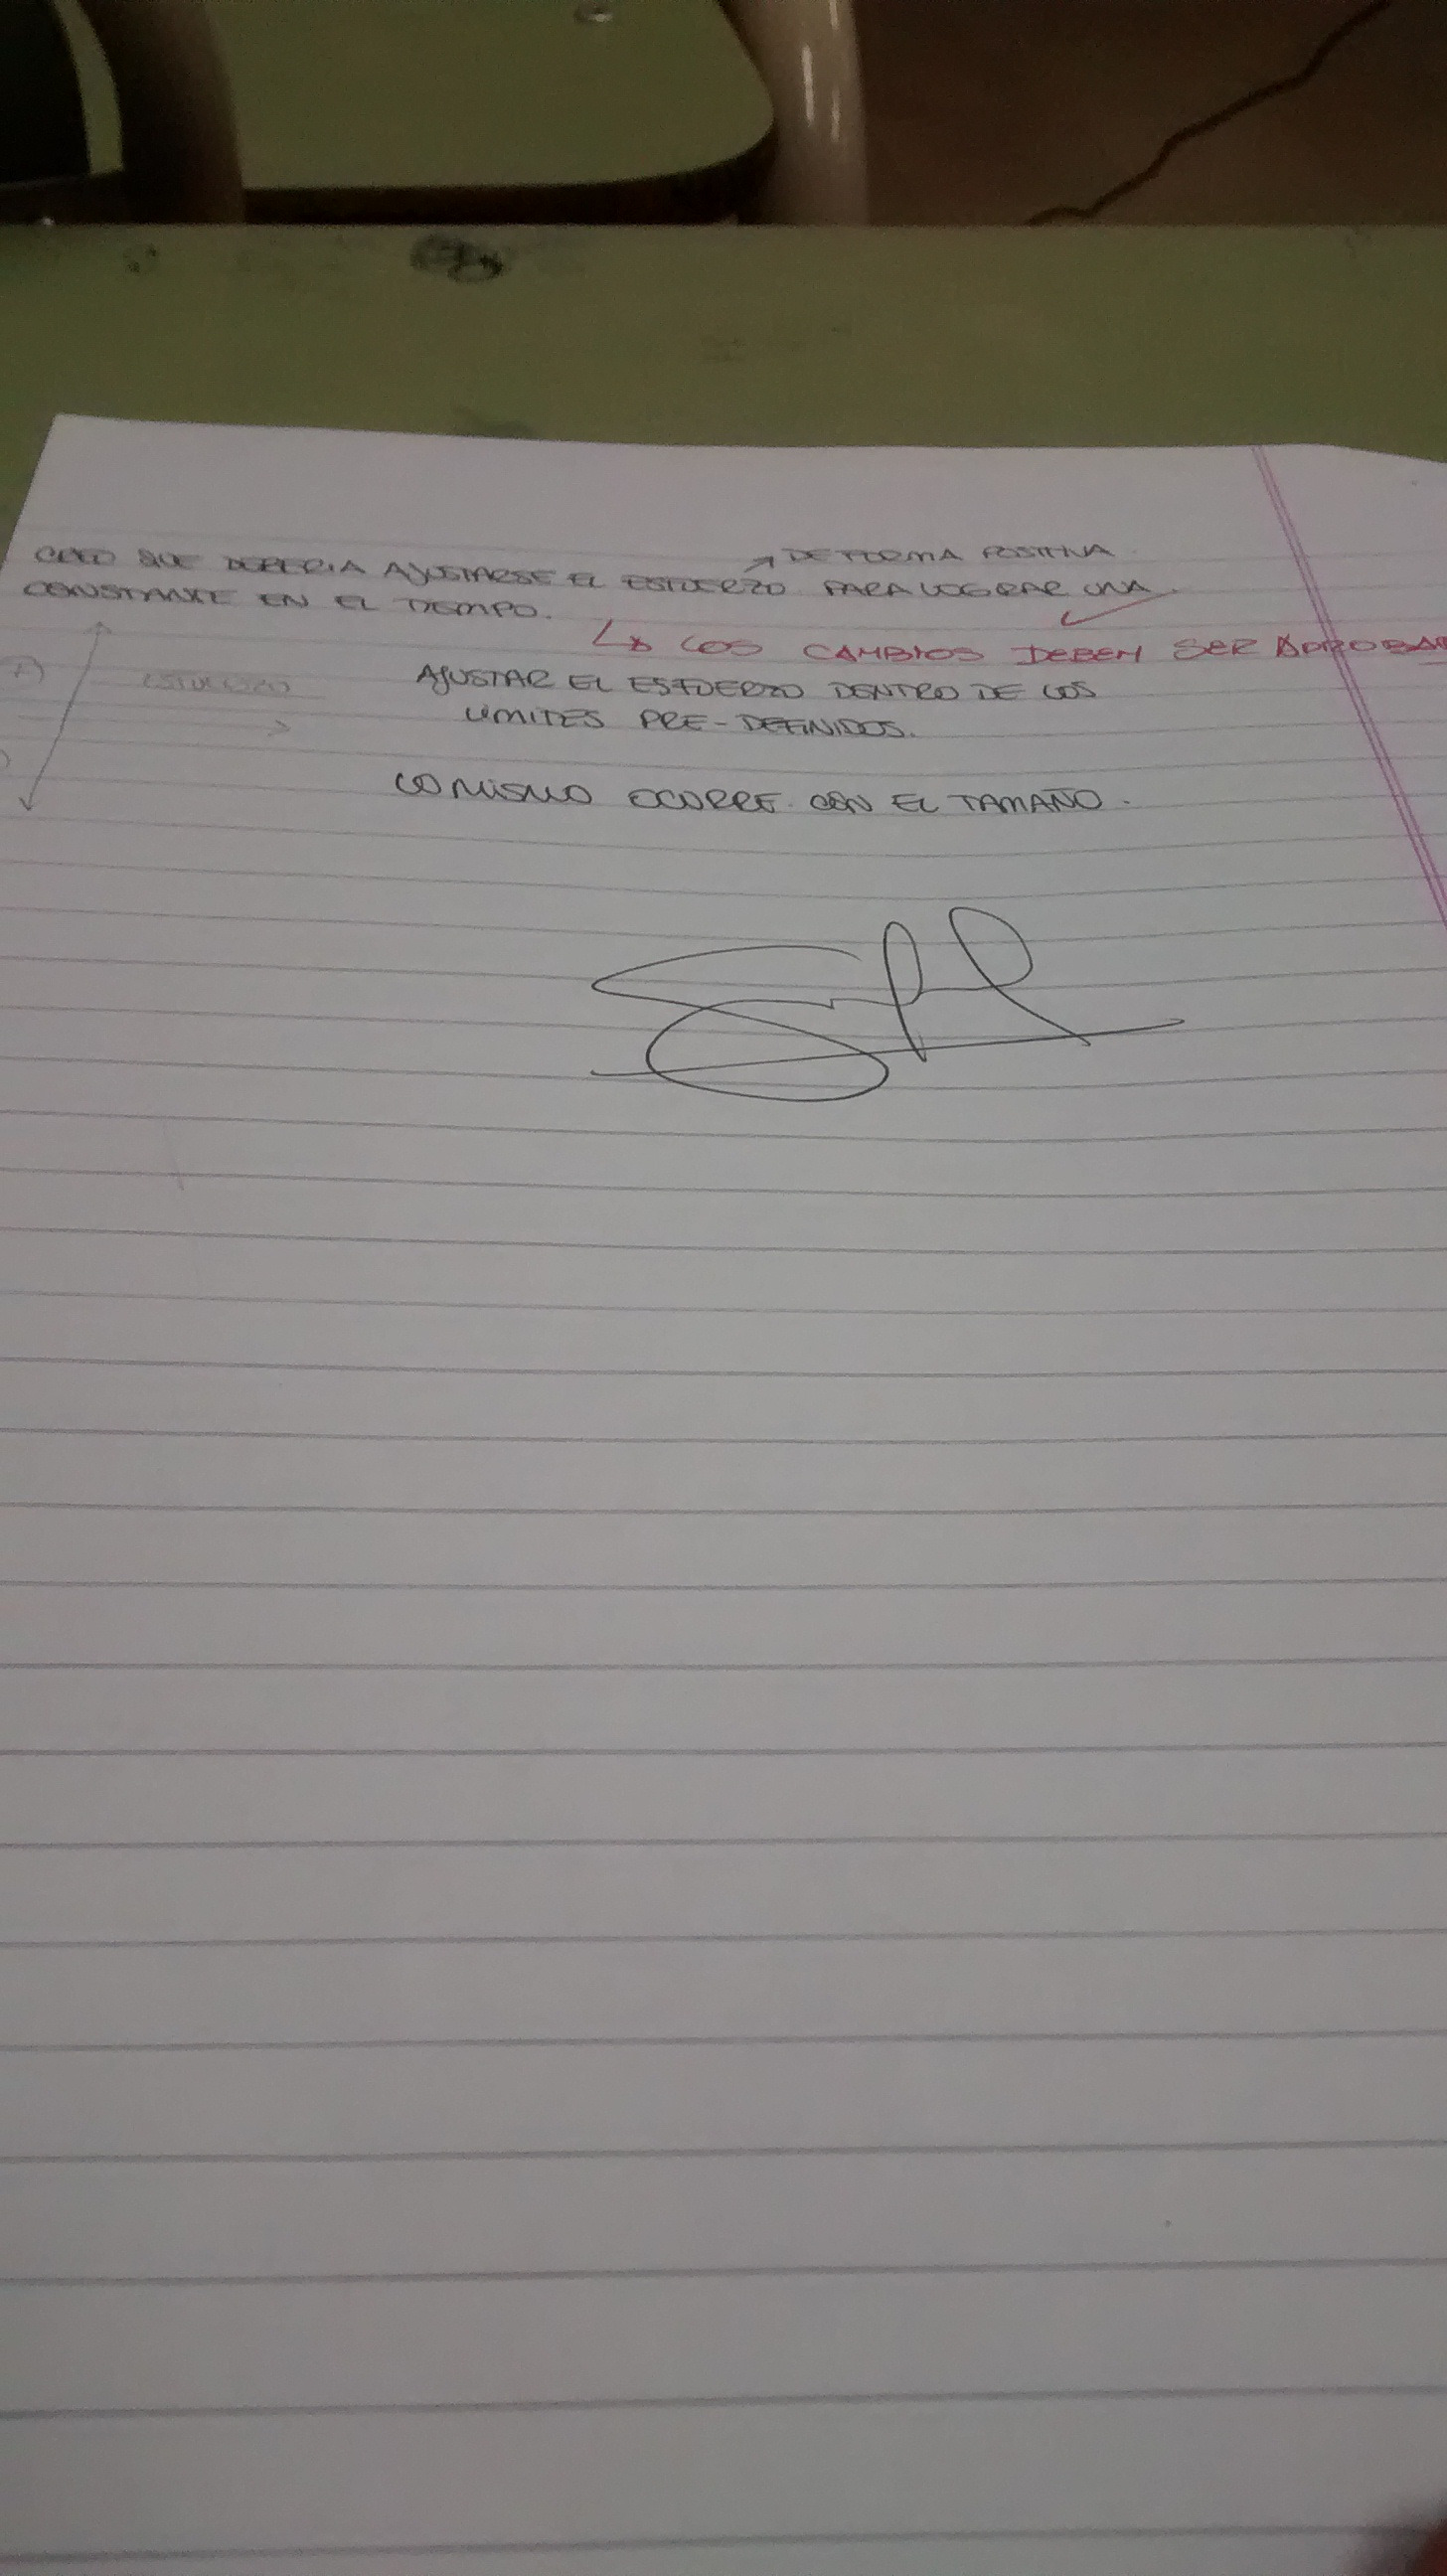 DE FORMA POSITIVA
CREO QUE DEBERIA AJUSTARSE EL ESFUERZO PARA LOGRAR UNA
CONSTANTE EN EL TIEMPO.
LOS CAMBIOS DEBEN SER APROBA
ESFUERZO
AJUSTAR EL ESFUERZO DENTRO DE LOS
LIMITES PRE-DEFINIDOS.
LO MISMO OCURRE CON EL TAMAÑO.